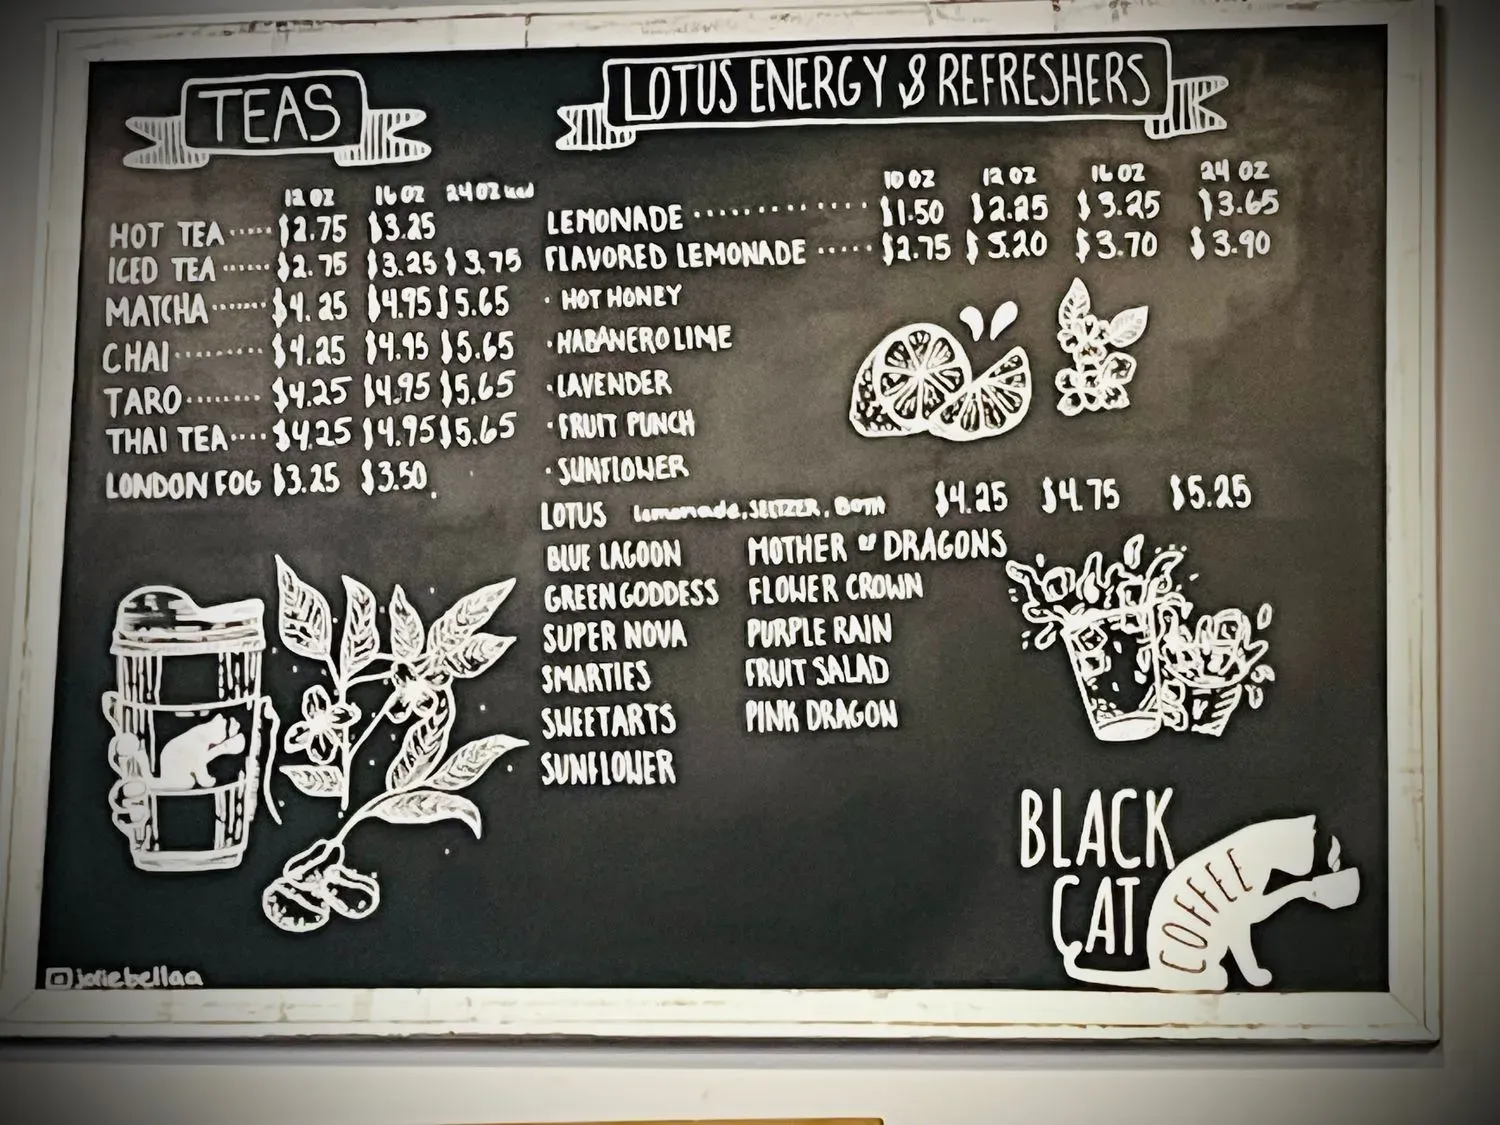 TEAS
12 OZ 16 OZ 24 OZ iced
HOT TEA ..... $2.75 $3.25
ICED TEA ...... $2.75 $3.25 $3.75
MATCHA ....... $4.25 $4.95 $5.65
CHAI ......... $4.25 $4.95 $5.65
TARO ........ $4.25 $4.95 $5.65
THAI TEA .... $4.25 $4.95 $5.65
LONDON FOG $3.25 $3.50
LOTUS ENERGY & REFRESHERS
10 OZ 12 OZ 16 OZ 24 OZ
LEMONADE ............. $1.50 $2.25 $3.25 $3.65
FLAVORED LEMONADE ..... $2.75 $3.20 $3.70 $3.90
· HOT HONEY
· HABANERO LIME
· LAVENDER
· FRUIT PUNCH
· SUNFLOWER
LOTUS lemonade, SELTZER, BOTH $4.25 $4.75 $5.25
BLUE LAGOON
GREEN GODDESS
SUPER NOVA
SMARTIES
SWEETARTS
SUNFLOWER
MOTHER OF DRAGONS
FLOWER CROWN
PURPLE RAIN
FRUIT SALAD
PINK DRAGON
BLACK
CAT
COFFEE
joriebellaa